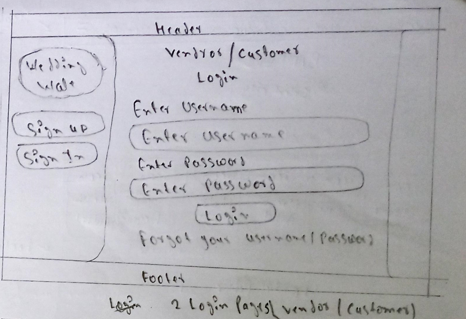 Header
Wedding
Wale
Sign up
Sign In
Vendros / Customer
Login
Enter Username
Enter user name
Enter Password
Enter Password
Login
Forgot your username / Password
Footer
Login 2 Login Pages ( vendor / customer )